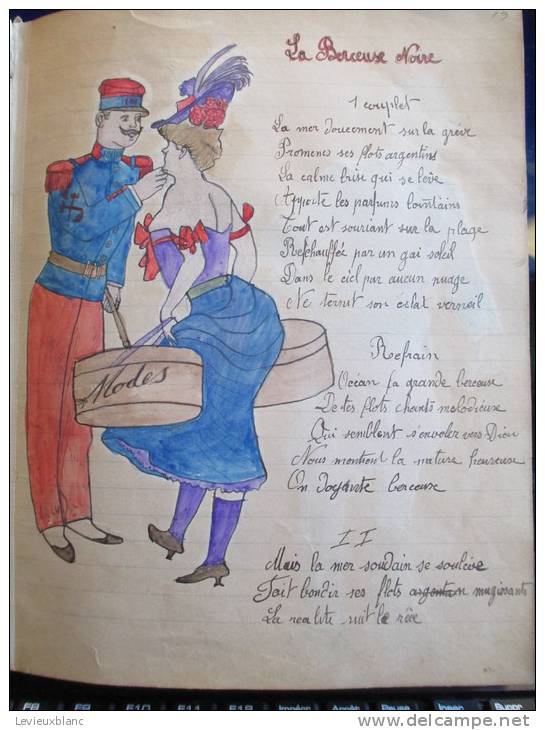 19
La Berceuse Noire
1 couplet
La mer doucement sur la grève
Promenes ses flots argentins
La calme brise qui se lève
Apporte les parfums lointains
Tout est souriant sur la plage
Réchauffée par un gai soleil
Dans le ciel par aucun nuage
Ne ternit son éclat vermeil
Refrain
Océan ta grande berceuse
De tes flots chants mélodieuse
Qui semblent s'envoler vers Dieu
Nous montrent la nature heureuse
berceuse
II
Mais la mer soudain se soulève
Fait bondir ses flots argentan mugissants
La realité suit le rêve
Modes
F8 F9 F10 F11 F12 Impécr Arrêt Pause Inser Suppr
Levieuxblanc
delcampe.net